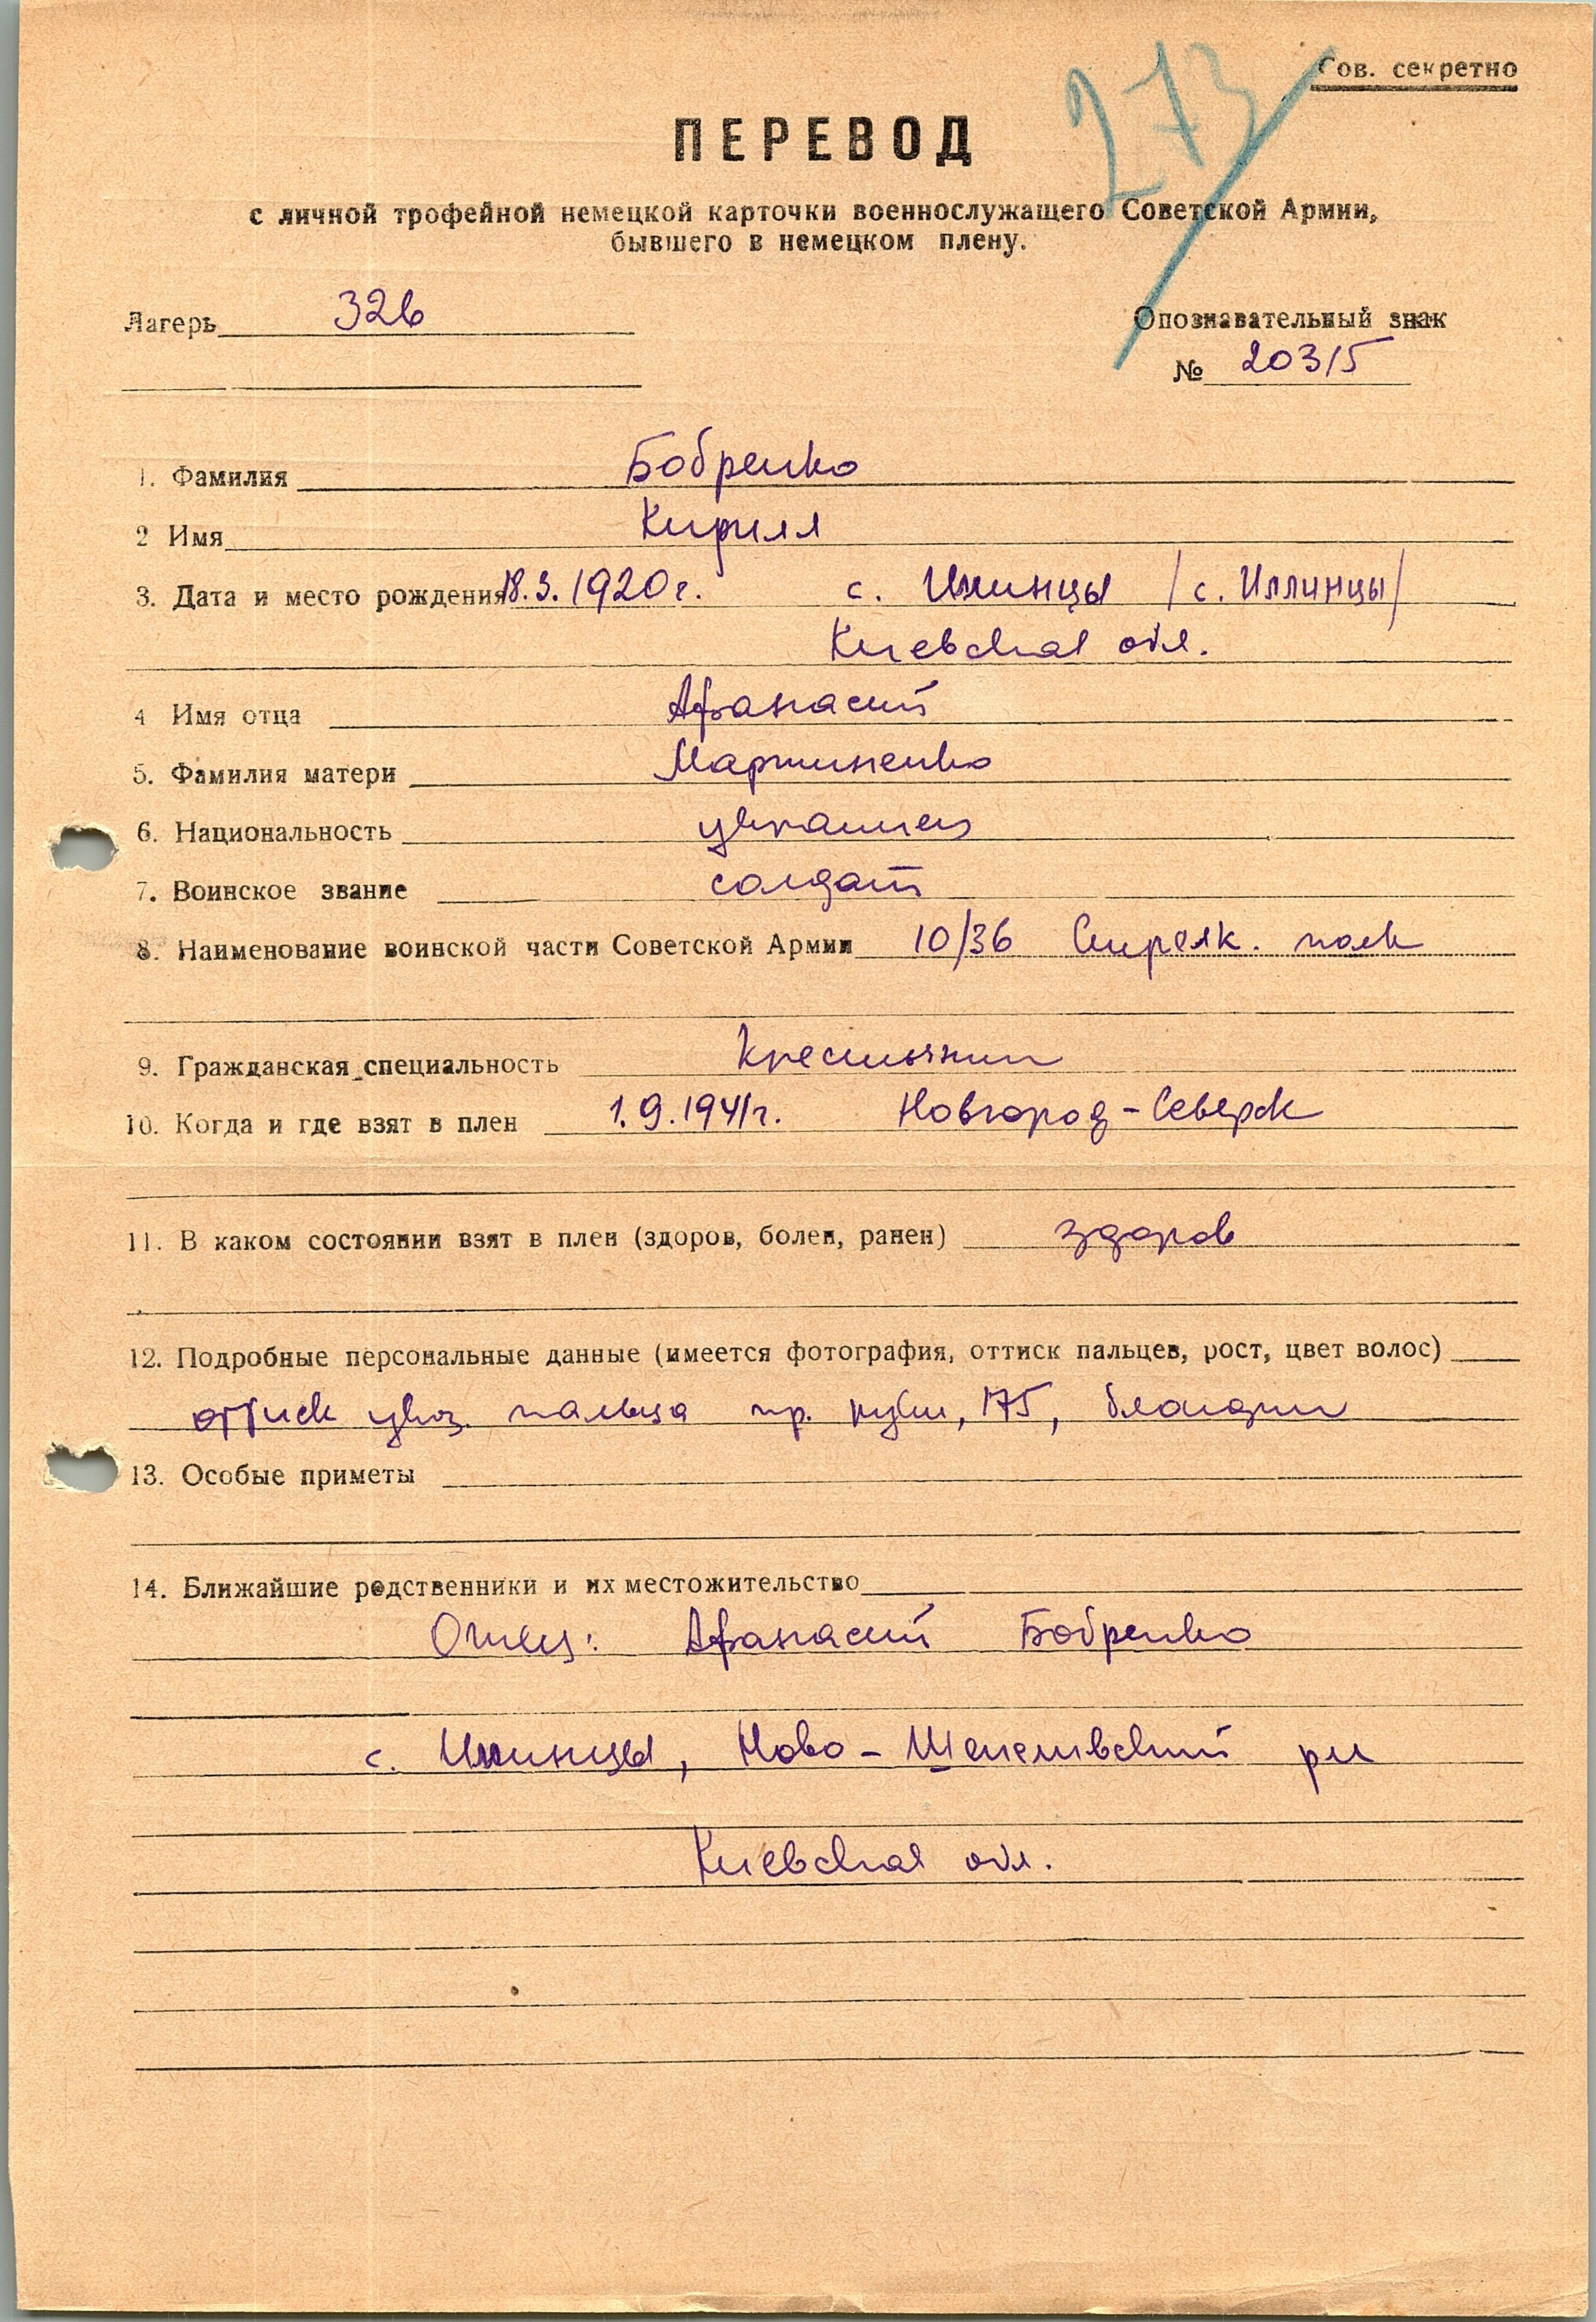 273
Сов. секретно
ПЕРЕВОД
с личной трофейной немецкой карточки военнослужащего Советской Армии,
бывшего в немецком плену.
Лагерь 326
Опознавательный знак
№ 20315
1. Фамилия Бобренко
2 Имя Кирилл
3. Дата и место рождения 18.3.1920г. с. Илинцы /с. Иллинцы/
Киевская обл.
4 Имя отца Афанасий
5. Фамилия матери Мартиненко
6. Национальность украинец
7. Воинское звание солдат
8. Наименование воинской части Советской Армии 10/36 Стрелк. полк
9. Гражданская специальность Крестьянин
10. Когда и где взят в плен 1.9.1941г. Новгород-Северск
11. В каком состоянии взят в плен (здоров, болен, ранен) здоров
12. Подробные персональные данные (имеется фотография, оттиск пальцев, рост, цвет волос)
оттиск указ. пальца пр. руки, 175, блондин
13. Особые приметы
14. Ближайшие родственники и их местожительство
Отец: Афанасий Бобренко
с. Илинцы, Ново-Шепеливский рн
Киевская обл.